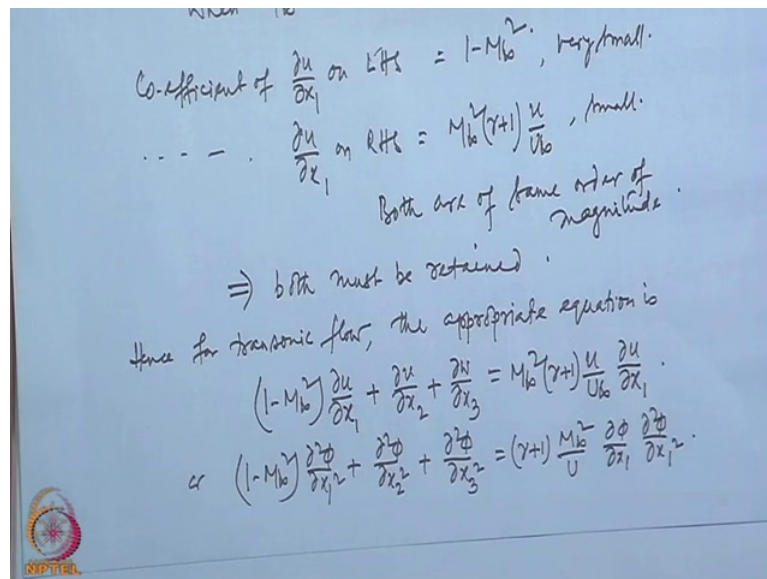 when
Co-efficient of ∂u/∂x₁ on LHS = 1-M∞², very small.
---- . ∂u/∂x₁ on RHS = M∞²(γ+1) u/U∞, small.
Both are of same order of
magnitude.
⇒ both must be retained.
Hence for transonic flow, the appropriate equation is
(1-M∞²) ∂u/∂x₁ + ∂u/∂x₂ + ∂w/∂x₃ = M∞²(γ+1) u/U∞ ∂u/∂x₁.
or (1-M∞²) ∂²φ/∂x₁² + ∂²φ/∂x₂² + ∂²φ/∂x₃² = (γ+1) M∞²/U ∂φ/∂x₁ ∂²φ/∂x₁².
NPTEL